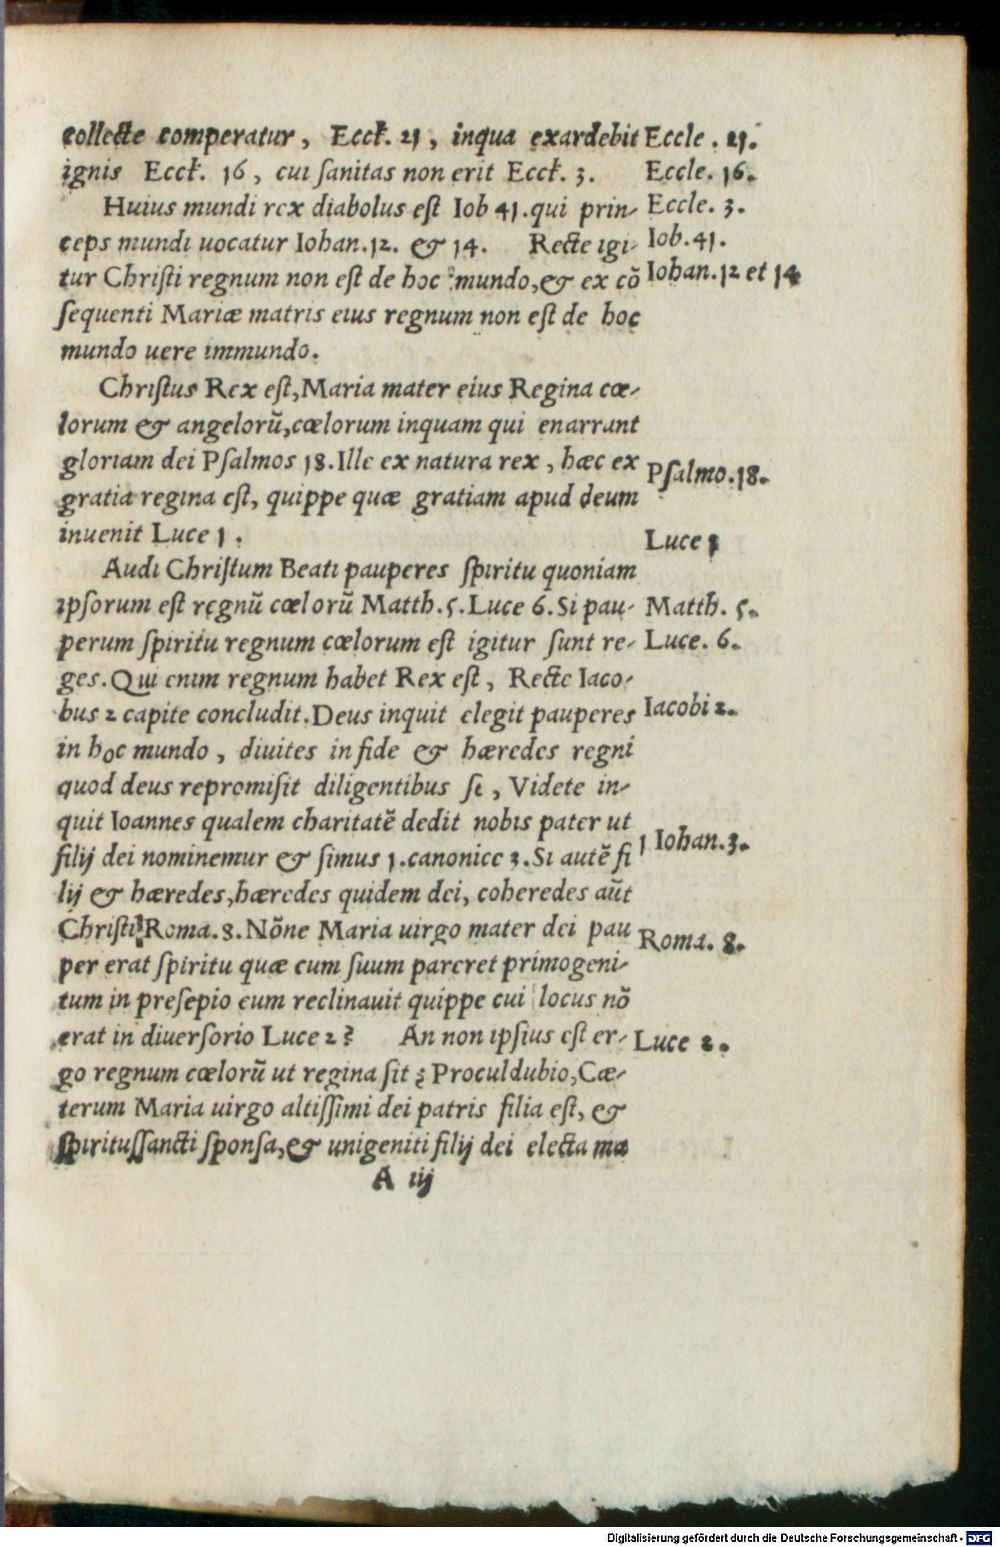 collecte comperatur, Eccł. 21, inqua exardebit
ignis Eccł. 16, cui ſanitas non erit Eccł. 3.
Huius mundi rex diabolus eſt Iob 41. qui prin-
ceps mundi uocatur Iohan. 12. & 14. Recte igi-
tur Chriſti regnum non eſt de hoc mundo, & ex cõ
ſequenti Mariæ matris eius regnum non eſt de hoc
mundo uere immundo.
Chriſtus Rex eſt, Maria mater eius Regina cœ-
lorum & angelorũ, cœlorum inquam qui enarrant
gloriam dei Pſalmos 18. Ille ex natura rex, hæc ex
gratia regina eſt, quippe quæ gratiam apud deum
inuenit Luce 1.
Audi Chriſtum Beati pauperes ſpiritu quoniam
ipſorum eſt regnũ cœlorũ Matth. 5. Luce 6. Si pau-
perum ſpiritu regnum cœlorum eſt igitur ſunt re-
ges. Qui enim regnum habet Rex eſt, Recte Iaco-
bus 2 capite concludit. Deus inquit elegit pauperes
in hoc mundo, diuites in fide & hæredes regni
quod deus repromiſit diligentibus ſe, Videte in-
quit Ioannes qualem charitatẽ dedit nobis pater ut
filij dei nominemur & ſimus 1. canonice 3. Si autẽ fi
lij & hæredes, hæredes quidem dei, coheredes aũt
Chriſti? Roma. 8. Nõne Maria uirgo mater dei pau
per erat ſpiritu quæ cum ſuum pareret primogeni-
tum in preſepio eum reclinauit quippe cui locus nõ
erat in diuerſorio Luce 2? An non ipſius eſt er-
go regnum cœlorũ ut regina ſit? Proculdubio, Cæ-
terum Maria uirgo altiſſimi dei patris filia eſt, &
ſpirituſſancti ſponſa, & unigeniti filij dei electa ma
A iij
Eccle. 21.
Eccle. 16.
Eccle. 3.
Iob. 41.
Iohan. 12 et 14
Pſalmo. 18.
Luce 1
Matth. 5.
Luce. 6.
Iacobi 2.
1 Iohan. 3.
Roma. 8.
Luce 2.
Digitalisierung gefördert durch die Deutsche Forschungsgemeinschaft - DFG